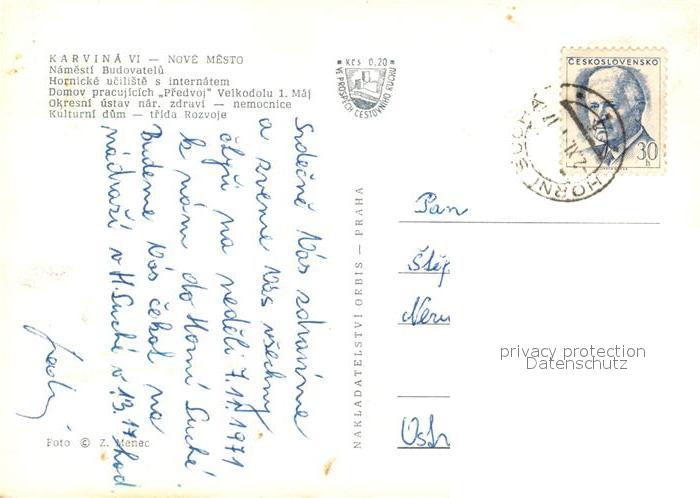 KARVINÁ VI — NOVÉ MĚSTO
Náměstí Budovatelů
Hornické učiliště s internátem
Domov pracujících „Předvoj" Velkodolu 1. Máj
Okresní ústav nár. zdraví — nemocnice
Kulturní dům — třída Rozvoje
Kčs 0,20
VE PROSPĚCH CESTOVNÍHO RUCHU
ČESKOSLOVENSKO
30
h
HORNÍ SUCHÁ
Srdečně Vás zdravíme
a zveme Vás všechny
čtyři na neděli 7.11.1971
k nám do Horní Suché.
Budeme Vás čekat na
nádraží v H. Suché v 13.17 hod.
NAKLADATELSTVÍ ORBIS — PRAHA
Pan
Štěp
Neru
privacy protection
Datenschutz
Foto © Z. Menec